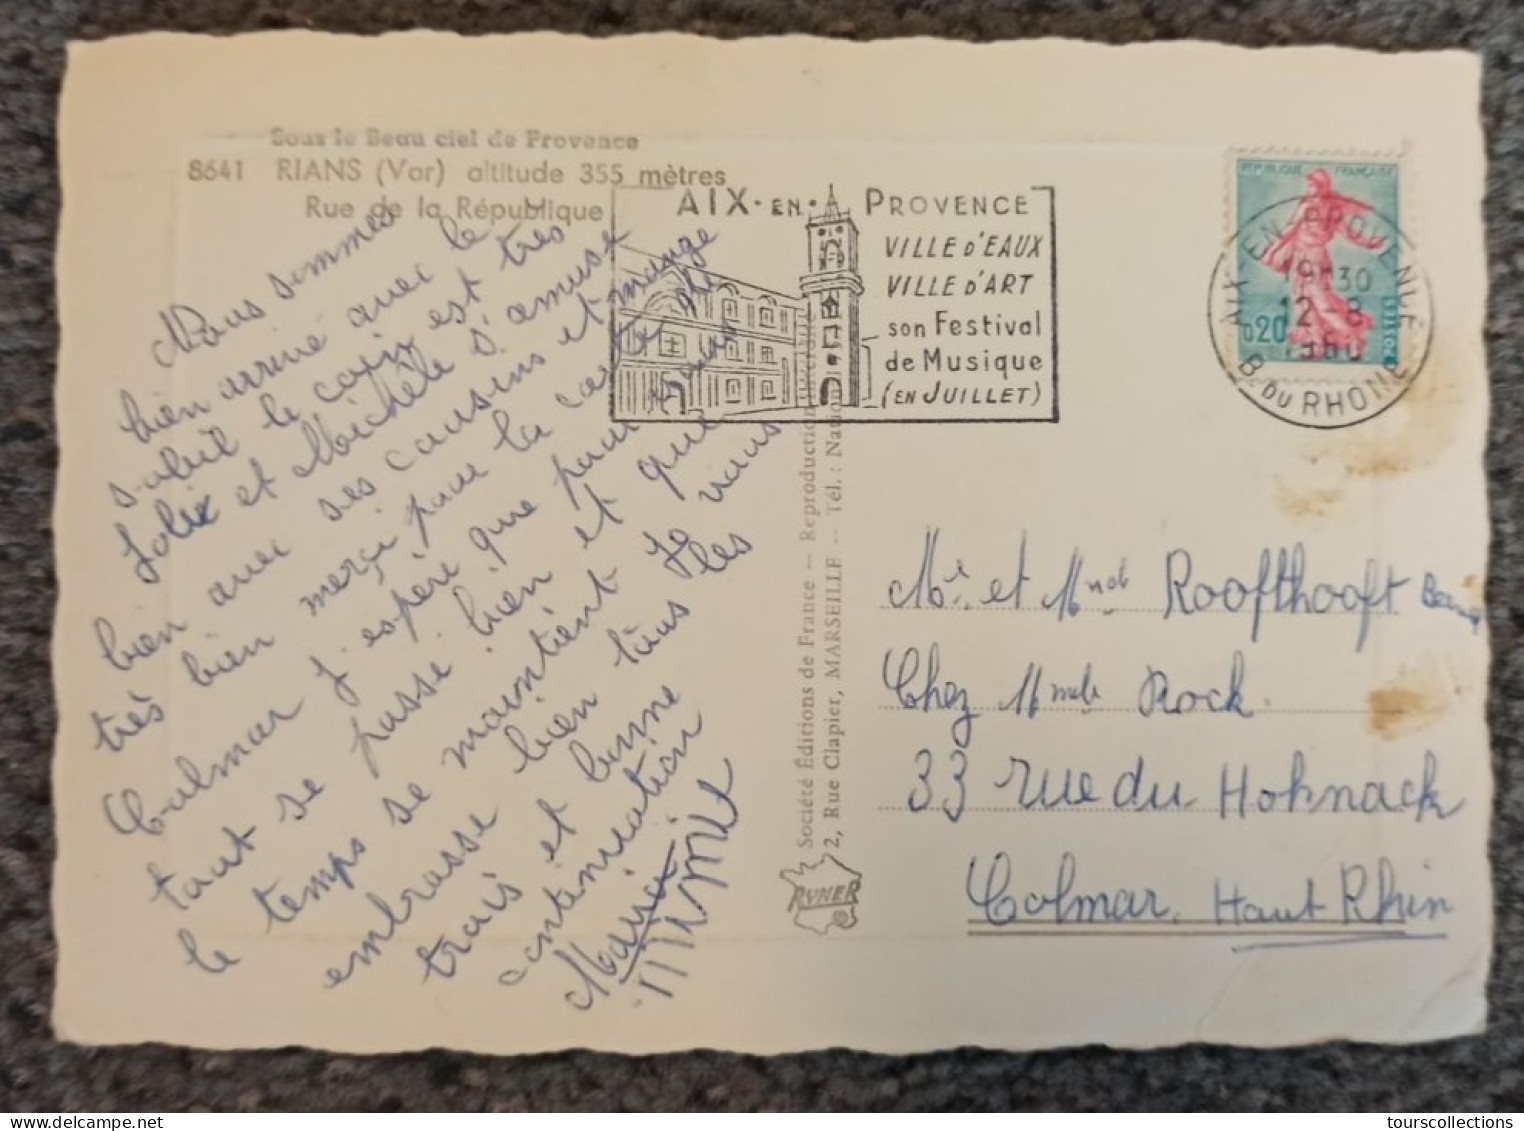 Sous le Beau ciel de Provence
8641 RIANS (Var) altitude 355 mètres
Rue de la République
Nous sommes
bien arrivé avec le
soleil le coin est très
Jolie et Michèle s'amuse
bien avec ses cousins et mange
très bien merci pour la carte de
Colmar j'espère que pour vous
tout se passe bien et que
le temps se maintient Je vous
embrasse bien tous les
trois et bonne
continuation
AIX-EN-PROVENCE
VILLE D'EAUX
VILLE D'ART
son Festival
de Musique
(EN JUILLET)
REPUBLIQUE FRANÇAISE
0,20
AIX-EN-PROVENCE
19H30
12-8
1960
B. DU RHONE
Société Éditions de France — Reproduction interdite
2, Rue Clapier, MARSEILLE — Tél.: National
RYNER
Mr et Mme Roofthooft
Chez Mme Rock
33 rue du Hohnack
Colmar. Haut Rhin
tourscollections